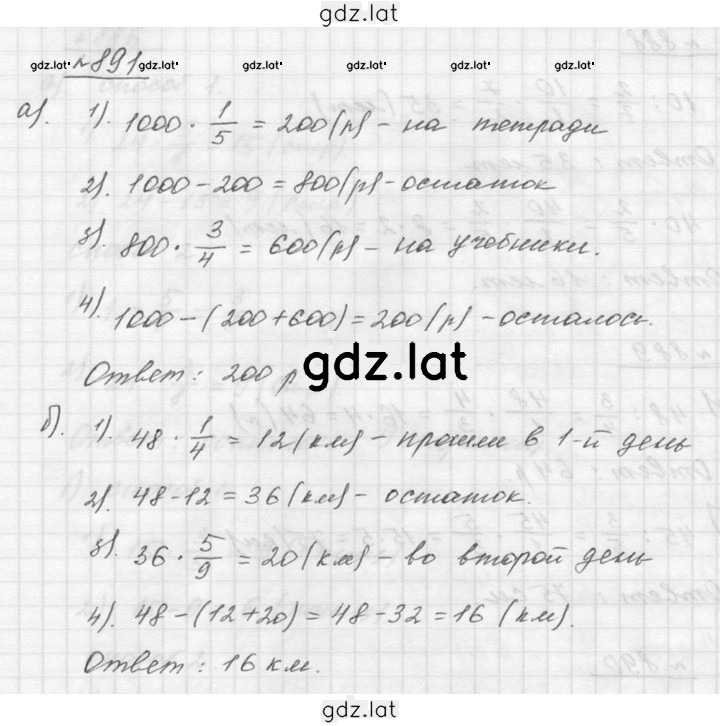 gdz.lat
gdz.lat gdz.lat gdz.lat gdz.lat gdz.lat gdz.lat
№891
а). 1). 1000 · 1/5 = 200(р) - на тетради
2). 1000 - 200 = 800(р) - остаток
3). 800 · 3/4 = 600(р) - на учебники.
4). 1000 - (200 + 600) = 200(р) - осталось.
Ответ: 200 р
gdz.lat
б). 1). 48 · 1/4 = 12(км) - прошли в 1-й день
2). 48 - 12 = 36(км) - остаток.
3). 36 · 5/9 = 20(км) - во второй день
4). 48 - (12 + 20) = 48 - 32 = 16 (км).
Ответ: 16 км.
gdz.lat